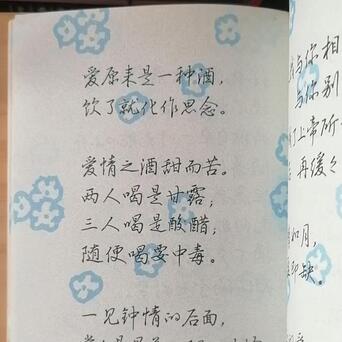 爱原来是一种酒,
饮了就化作思念。
爱情之酒甜而苦。
两人喝是甘露;
三人喝是酸醋;
随便喝要中毒。
一见钟情的后面,
与你相
与你别
上帝所
再缓々
如月,
缺。